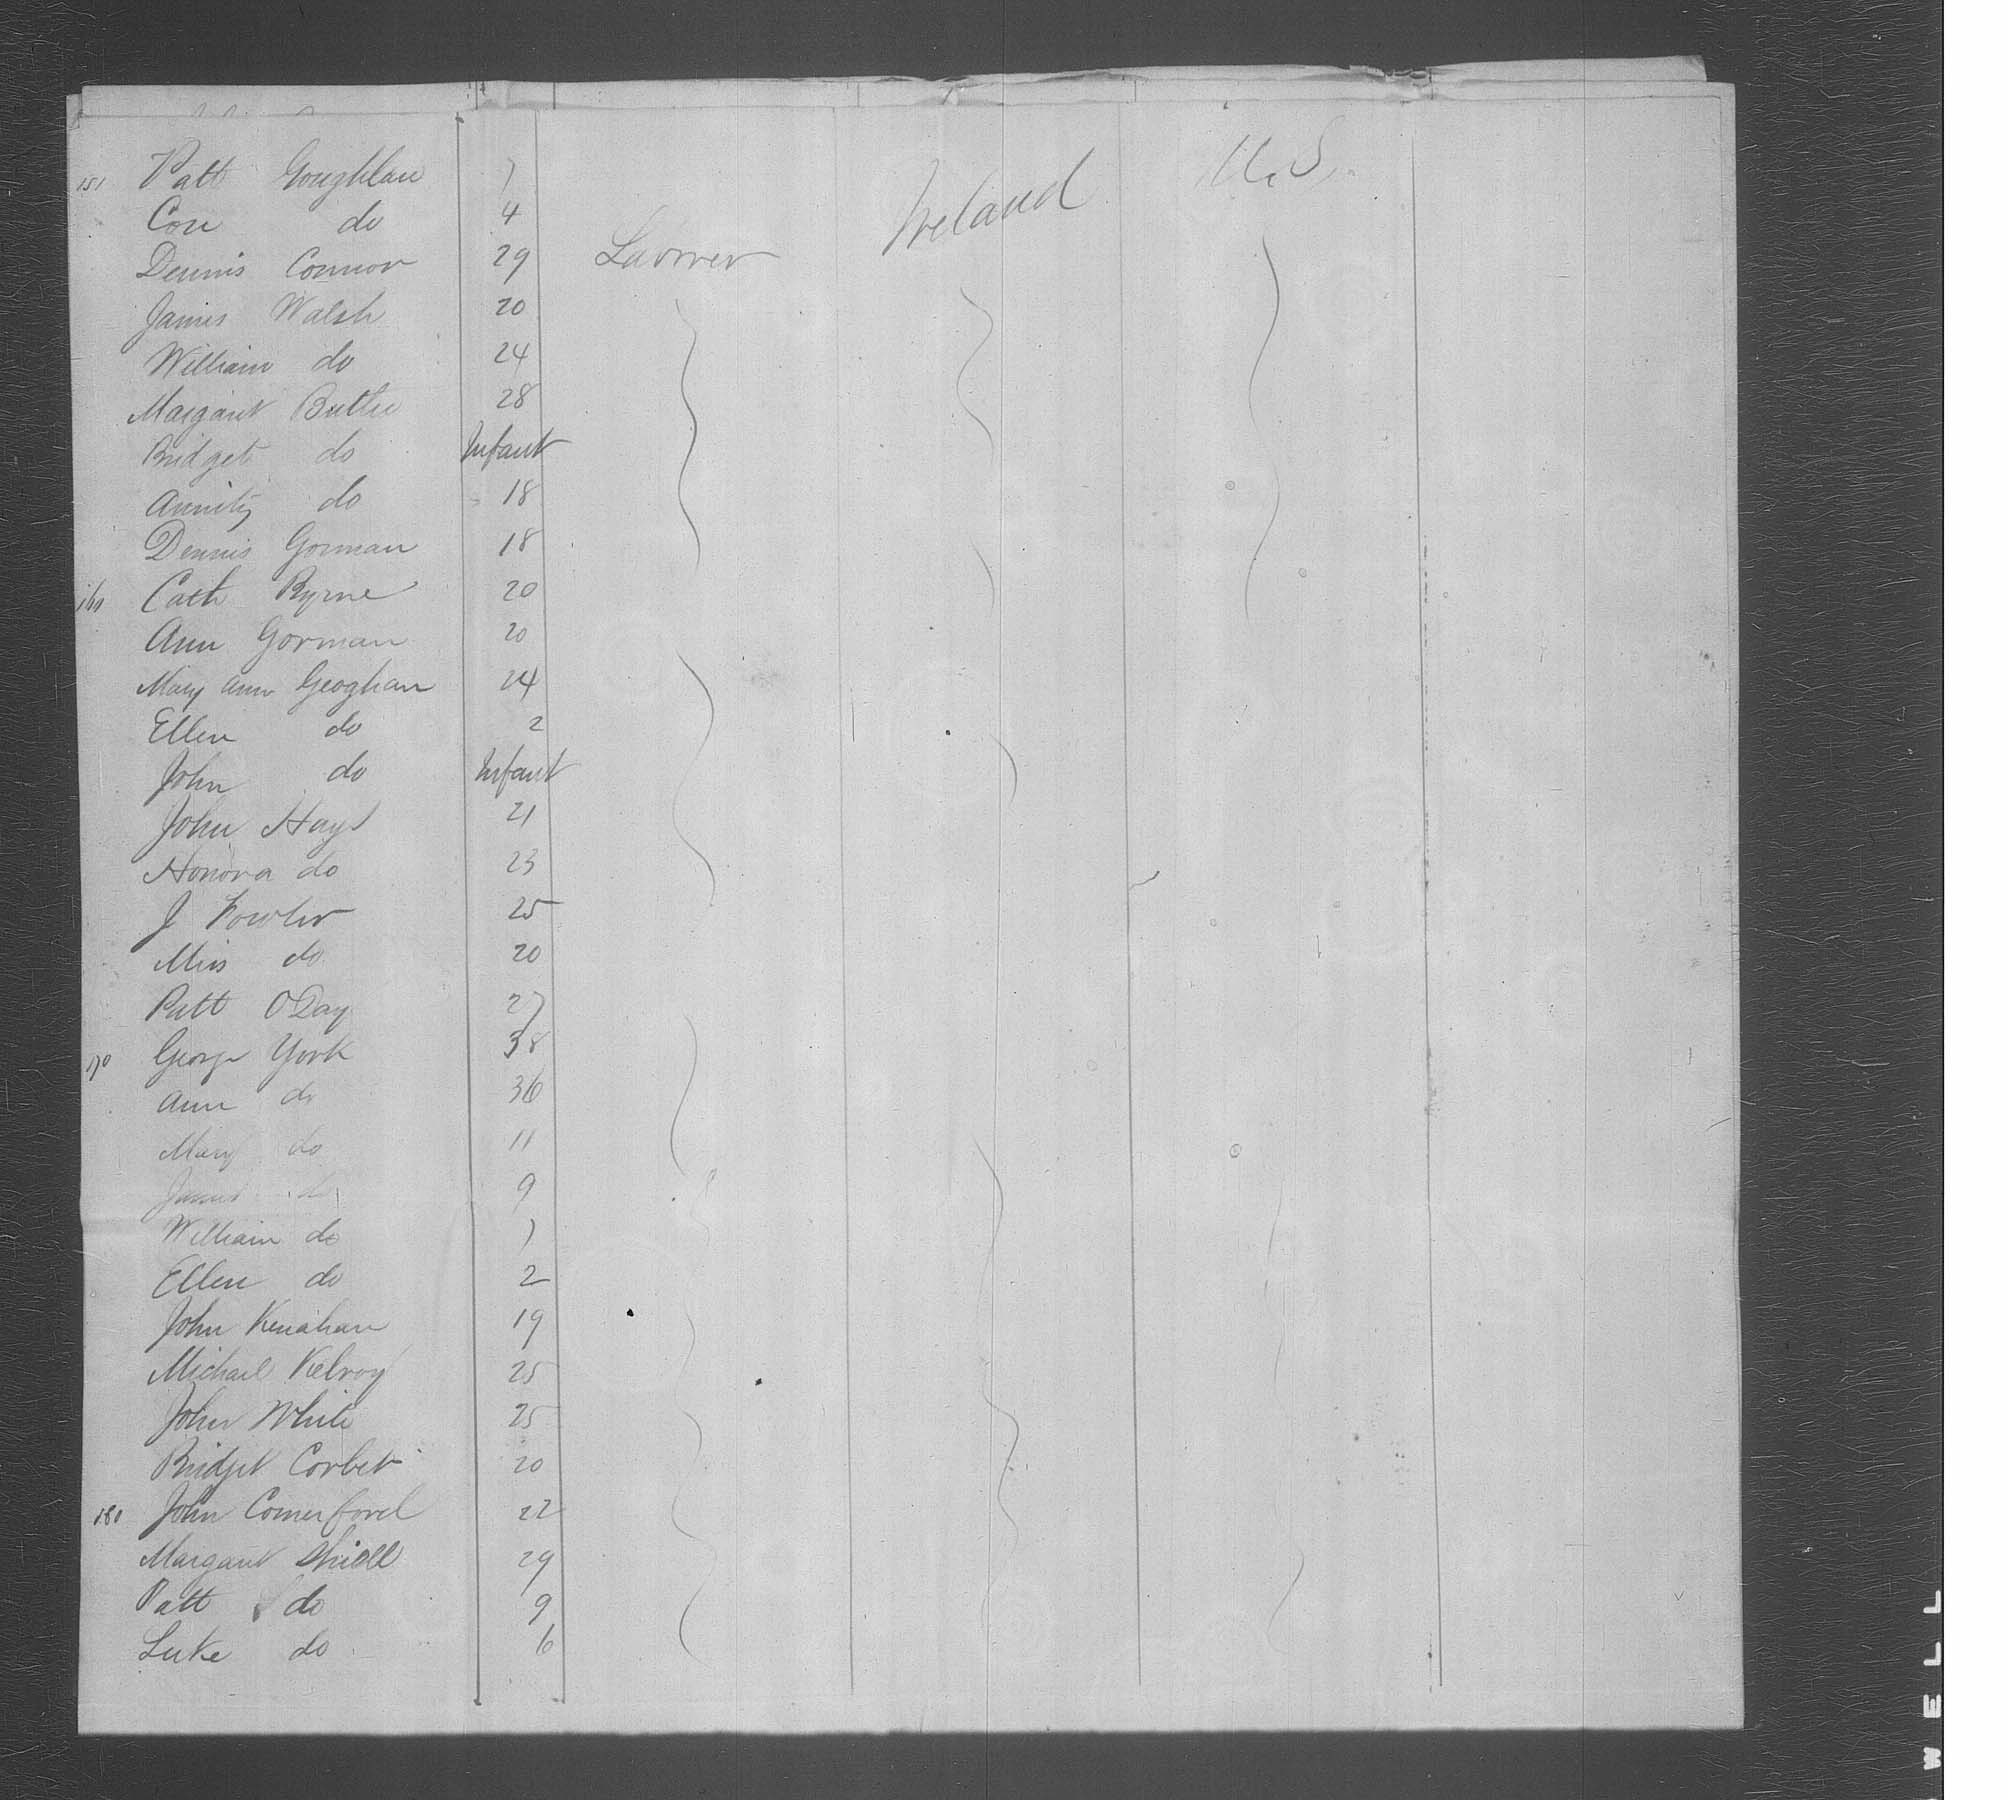 151 Patt Goughlan 7 U.S.
Con do 4 Ireland
Dennis Connor 29 Laorrer
James Walsh 20
William do 24
Margaret Butler 28
Bridget do Infant
do 18
Dennis Gorman 18
160 Cath Byrne 20
Ann Gorman 20
Mary Ann Geoghan 24
Ellen do 2
John do Infant
John Hays 21
Honora do 23
J Fowler 25
Mrs do 20
Patt O Day 27
170 George York 38
Ann do 36
Mary do 11
James do 9
William do 7
Ellen do 2
John Kenahan 19
Michael Kelroy 25
John White 25
Bridget Corbet 20
180 John Comerford 22
Margaret Shiell 29
Patt do 9
Luke do 6
WELL